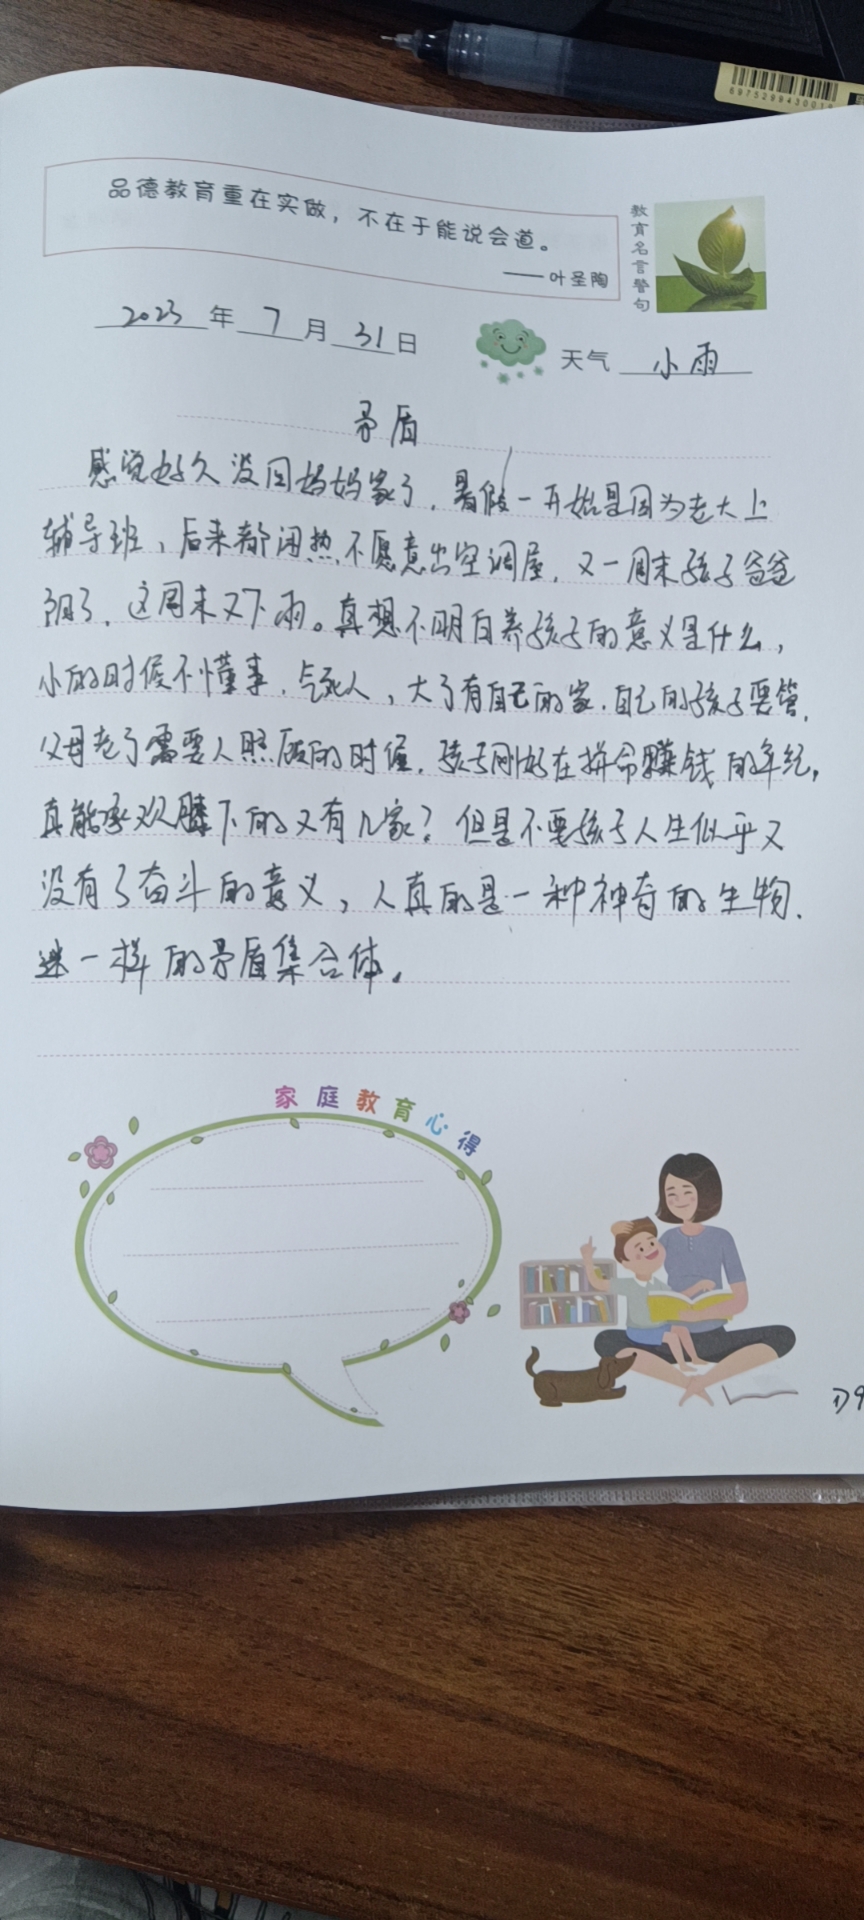 6975299430019
品德教育重在实做，不在于能说会道。
——叶圣陶
教育名言警句
2023年7月31日
天气 小雨
矛盾
感觉好久没回妈妈家了，暑假一开始是因为老大上
辅导班，后来都闷热不愿意出空调屋，又一周末孩子爸爸
阳了，这周末又下雨。真想不明白养孩子的意义是什么，
小的时候不懂事，气死人，大了有自己的家，自己的孩子要管，
父母老了需要人照顾的时候，孩子刚好在拼命赚钱的年纪，
真能承欢膝下的又有几家？但是不要孩子人生似乎又
没有了奋斗的意义，人真的是一种神奇的生物，
迷一样的矛盾集合体。
家庭教育心得